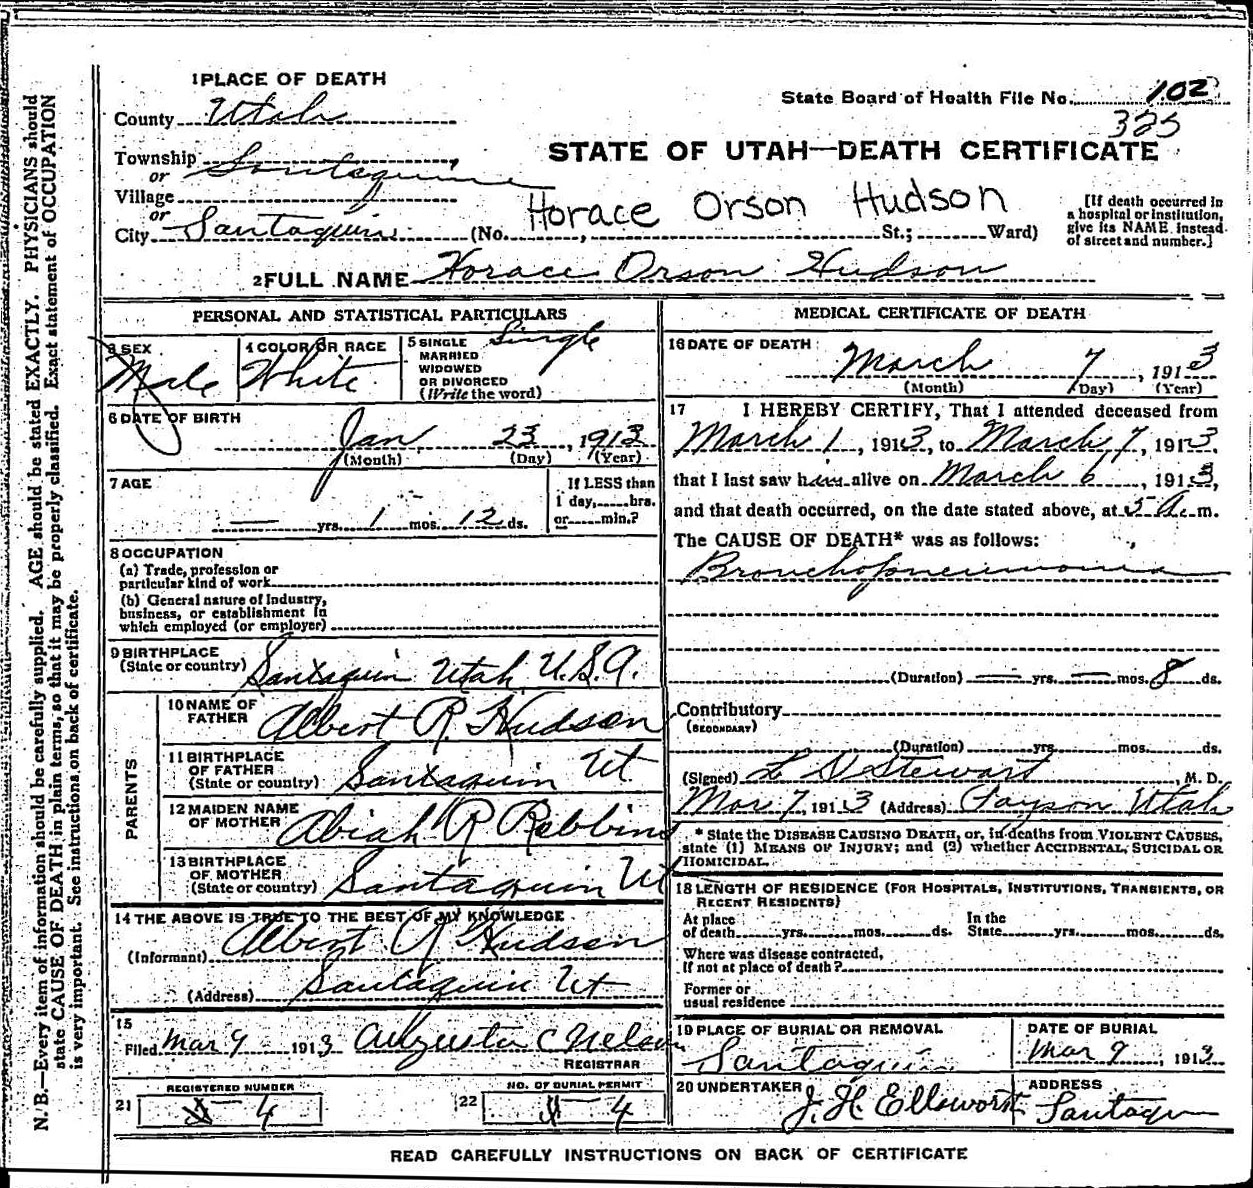 1 PLACE OF DEATH
County Utah
State Board of Health File No. 102
325
Township Santaquin
or
Village
or
City Santaquin
STATE OF UTAH—DEATH CERTIFICATE
Horace Orson Hudson
(No. , St.; Ward)
[If death occurred in
a hospital or institution,
give its NAME instead
of street and number.]
2 FULL NAME Horace Orson Hudson
PERSONAL AND STATISTICAL PARTICULARS
3 SEX
Male
4 COLOR OR RACE
White
5 SINGLE
MARRIED
WIDOWED
OR DIVORCED
(Write the word)
Single
6 DATE OF BIRTH
Jan 23, 1913
(Month) (Day) (Year)
7 AGE
— yrs. 1 mos. 12 ds.
If LESS than
1 day, hrs.
or min.?
8 OCCUPATION
(a) Trade, profession or
particular kind of work
(b) General nature of industry,
business, or establishment in
which employed (or employer)
9 BIRTHPLACE
(State or country) Santaquin Utah, U.S.A.
PARENTS
10 NAME OF
FATHER Albert R Hudson
11 BIRTHPLACE
OF FATHER
(State or country) Santaquin Ut
12 MAIDEN NAME
OF MOTHER Abiah R Robbins
13 BIRTHPLACE
OF MOTHER
(State or country) Santaquin Ut
14 THE ABOVE IS TRUE TO THE BEST OF MY KNOWLEDGE
(Informant) Albert R Hudson
(Address) Santaquin Ut
15
Filed Mar 9 1913 Augusta C Nelson
REGISTRAR
REGISTERED NUMBER
21 4
NO. OF BURIAL PERMIT
22 4
MEDICAL CERTIFICATE OF DEATH
16 DATE OF DEATH
March 7, 1913
(Month) (Day) (Year)
17 I HEREBY CERTIFY, That I attended deceased from
March 1, 1913, to March 7, 1913,
that I last saw him alive on March 6, 1913,
and that death occurred, on the date stated above, at 5 A. m.
The CAUSE OF DEATH* was as follows:
Bronchopneumonia
(Duration) — yrs. — mos. 8 ds.
Contributory
(SECONDARY)
(Duration) yrs. mos. ds.
(Signed) L D Stewart, M. D.
Mar 7, 1913 (Address) Payson Utah
* State the DISEASE CAUSING DEATH, or, in deaths from VIOLENT CAUSES,
state (1) MEANS OF INJURY; and (2) whether ACCIDENTAL, SUICIDAL OR
HOMICIDAL.
18 LENGTH OF RESIDENCE (FOR HOSPITALS, INSTITUTIONS, TRANSIENTS, OR
RECENT RESIDENTS)
At place
of death yrs. mos. ds.
In the
State yrs. mos. ds.
Where was disease contracted,
If not at place of death?
Former or
usual residence
19 PLACE OF BURIAL OR REMOVAL
Santaquin
DATE OF BURIAL
Mar 9, 1913
20 UNDERTAKER
J. H. Ellsworth
ADDRESS
Santaqu
READ CAREFULLY INSTRUCTIONS ON BACK OF CERTIFICATE
N. B.—Every item of information should be carefully supplied. AGE should be stated EXACTLY. PHYSICIANS should
state CAUSE OF DEATH in plain terms, so that it may be properly classified. Exact statement of OCCUPATION
is very important. See instructions on back of certificate.